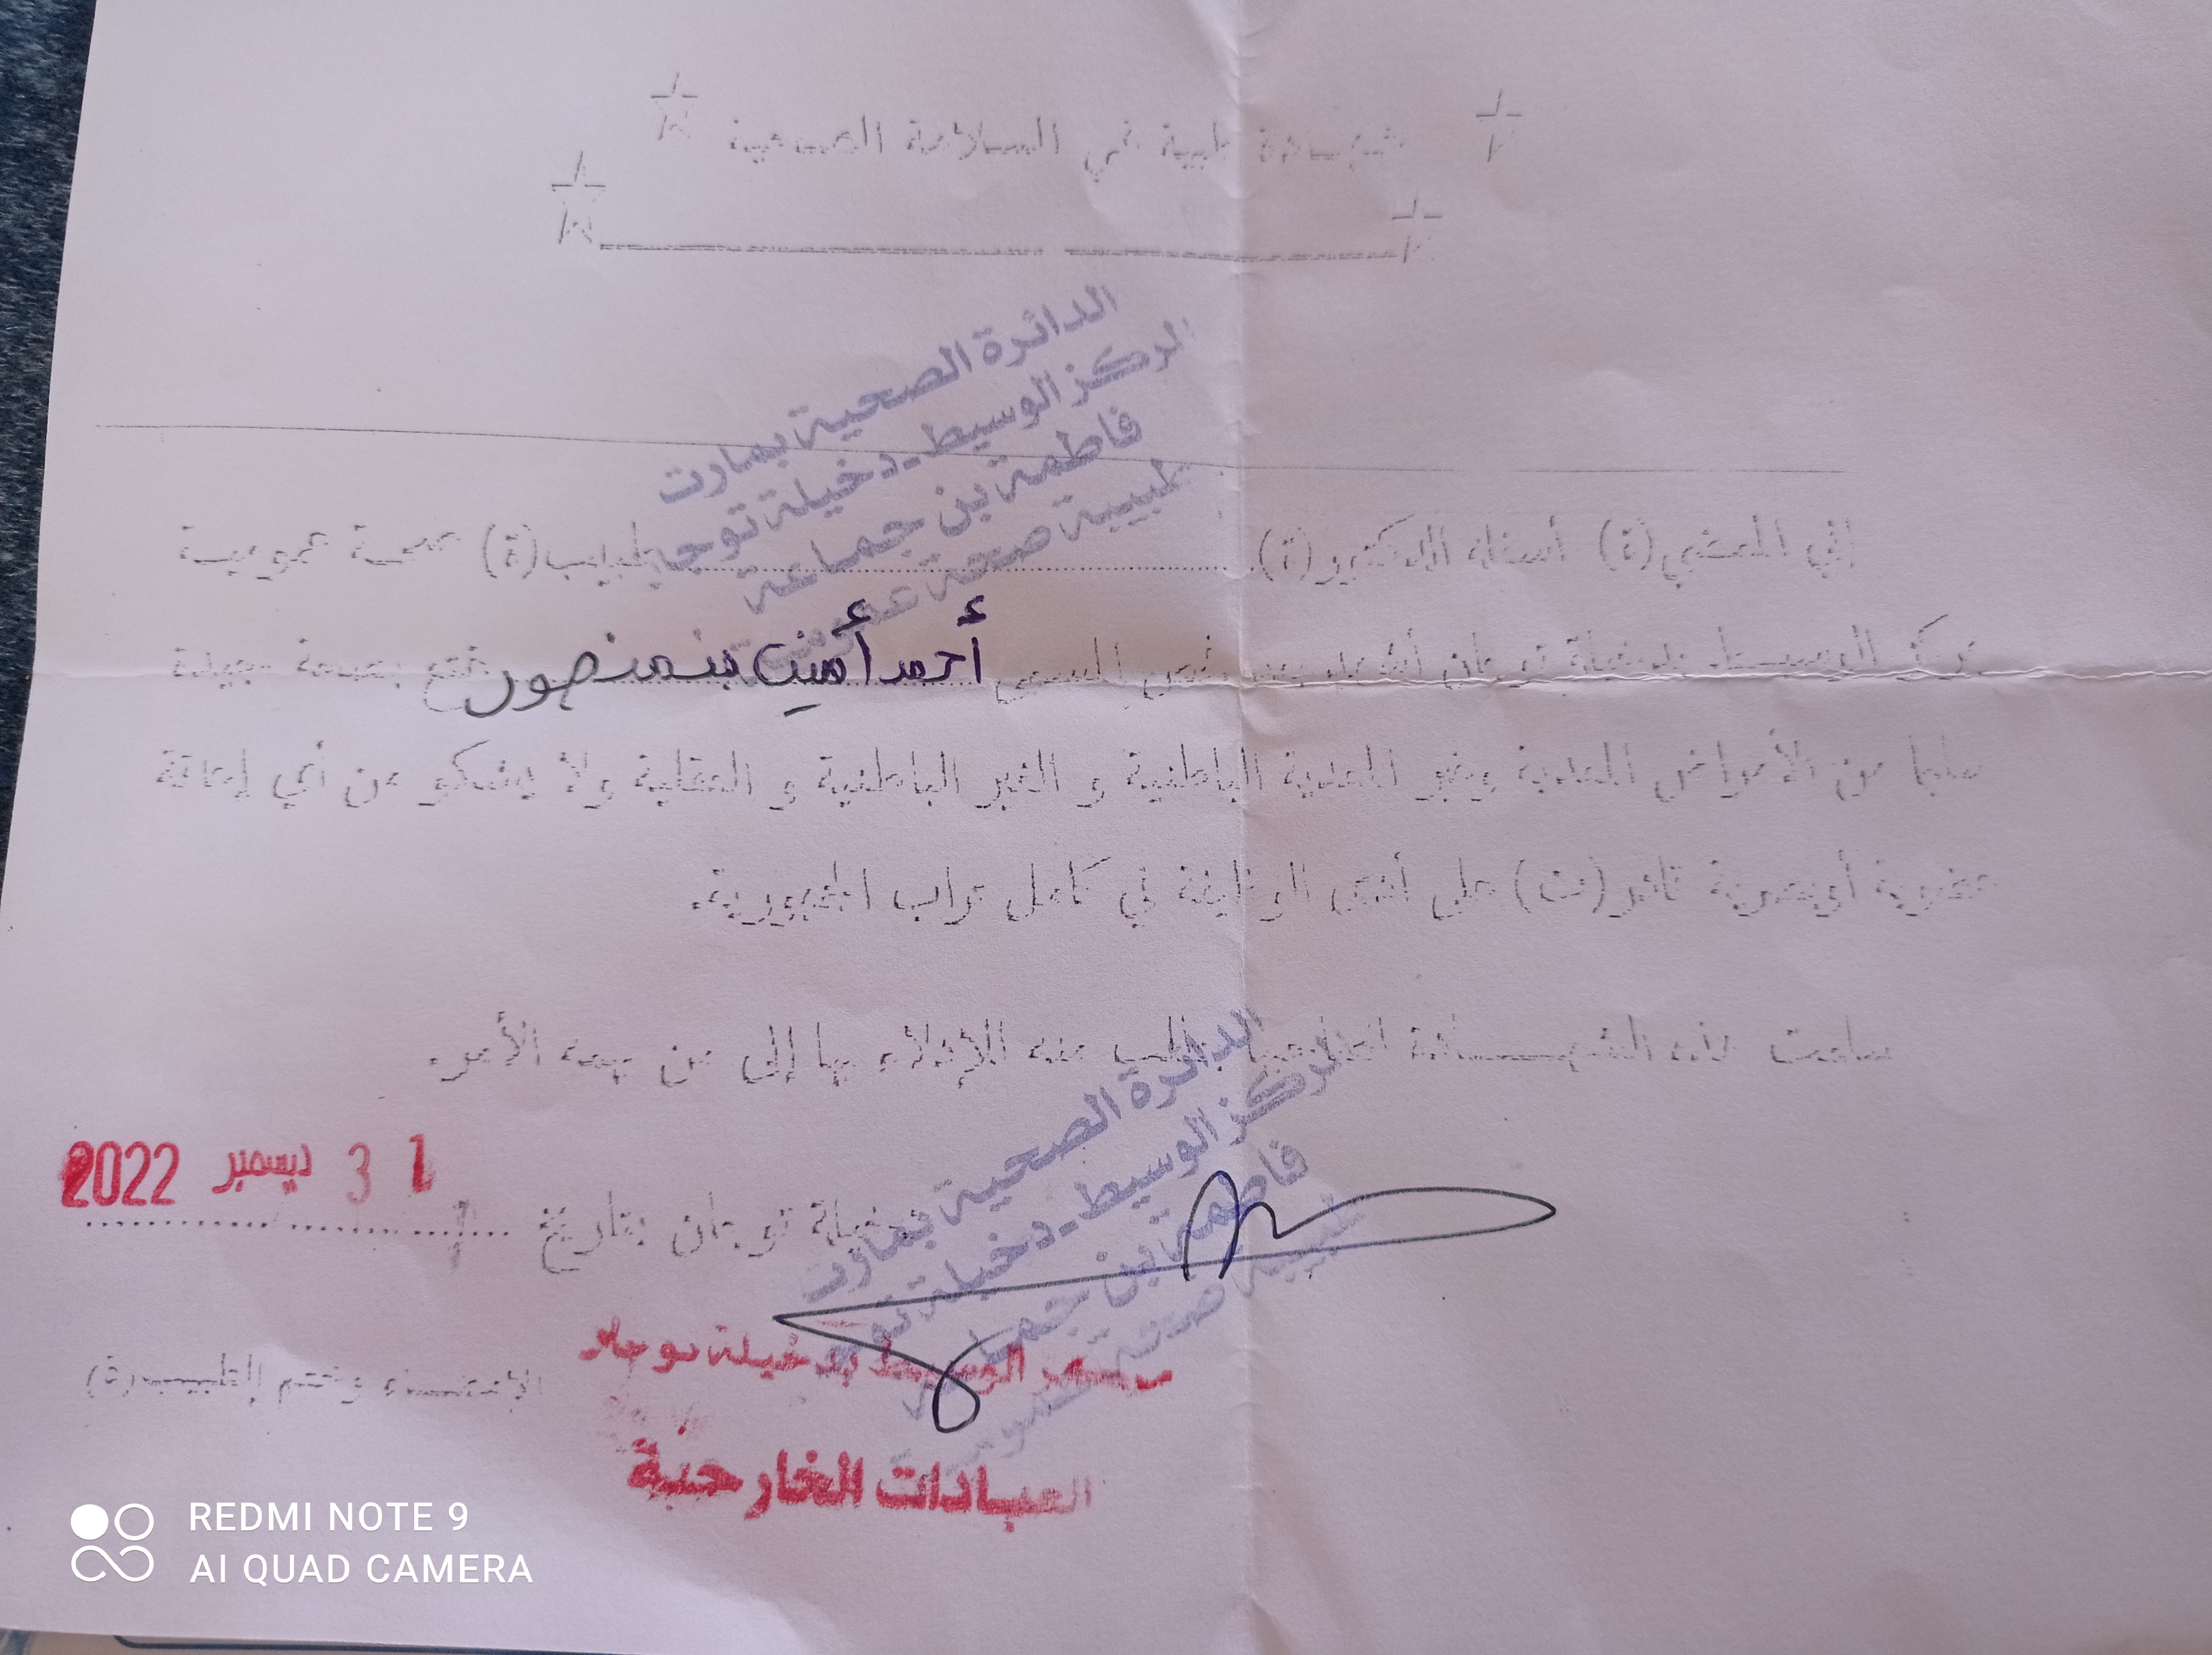 شهادة طبية في السلامة الصحية
الدائرة الصحية بمارث
المركز الوسيط - دخيلة توجان
فاطمة بن جماعة
طبيبة صحة عمومية
إني الممضي(ة) أسفله الدكتور(ة) طبيب(ة) صحة عمومية
بمركز الوسيط بدخيلة توجان أشهد بعد فحص المسمى أحمد أمين بنمنصور يتمتع بصحة جيدة
سليما من الأمراض المعدية وغير المعدية الباطنية و الغير الباطنية و العقلية ولا يشكو من أي إعاقة
عضوية أوبصرية قادر(ت) على أتم الوظيفة في كامل تراب الجمهورية.
سلمت هذه الشهادة بطلب منه للإدلاء بها إلى من يهمه الأمر.
31 ديسمبر 2022
دخيلة توجان بتاريخ
الدائرة الصحية بمارث
المركز الوسيط - دخيلة توجان
فاطمة بن جماعة
طبيبة صحة عمومية
الوسيط بدخيلة توجان
الإمضاء وختم الطبيب(ة)
العيادات الخارجية
REDMI NOTE 9
AI QUAD CAMERA